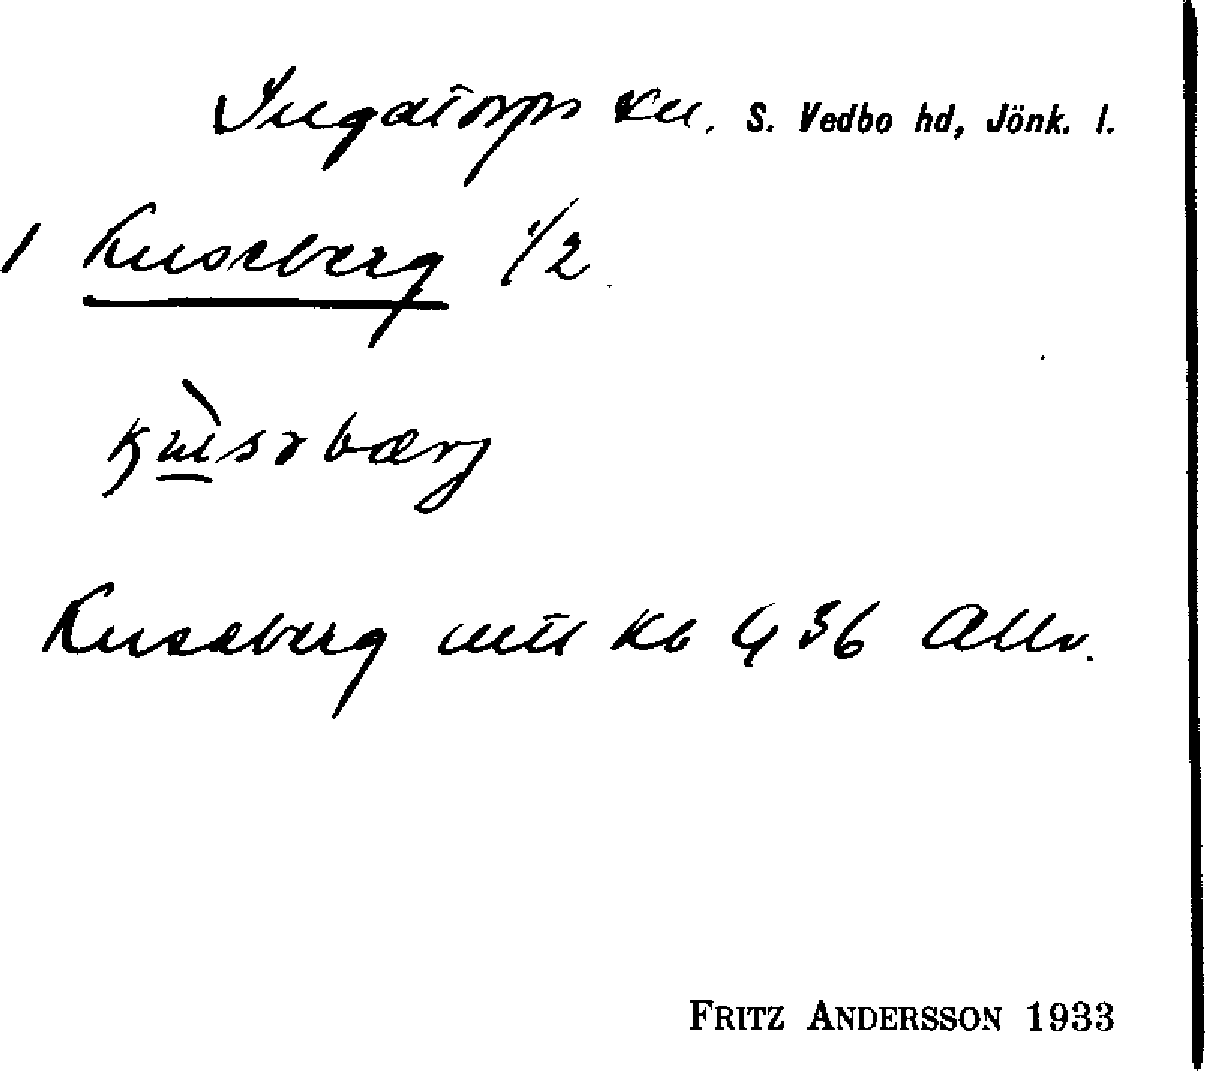 Ingatorps sn. S. Vedbo hd, Jönk. l.
1 Kuseberg 1/2
Kuseberg mtl Kb 4 36 Allv.
FRITZ ANDERSSON 1933